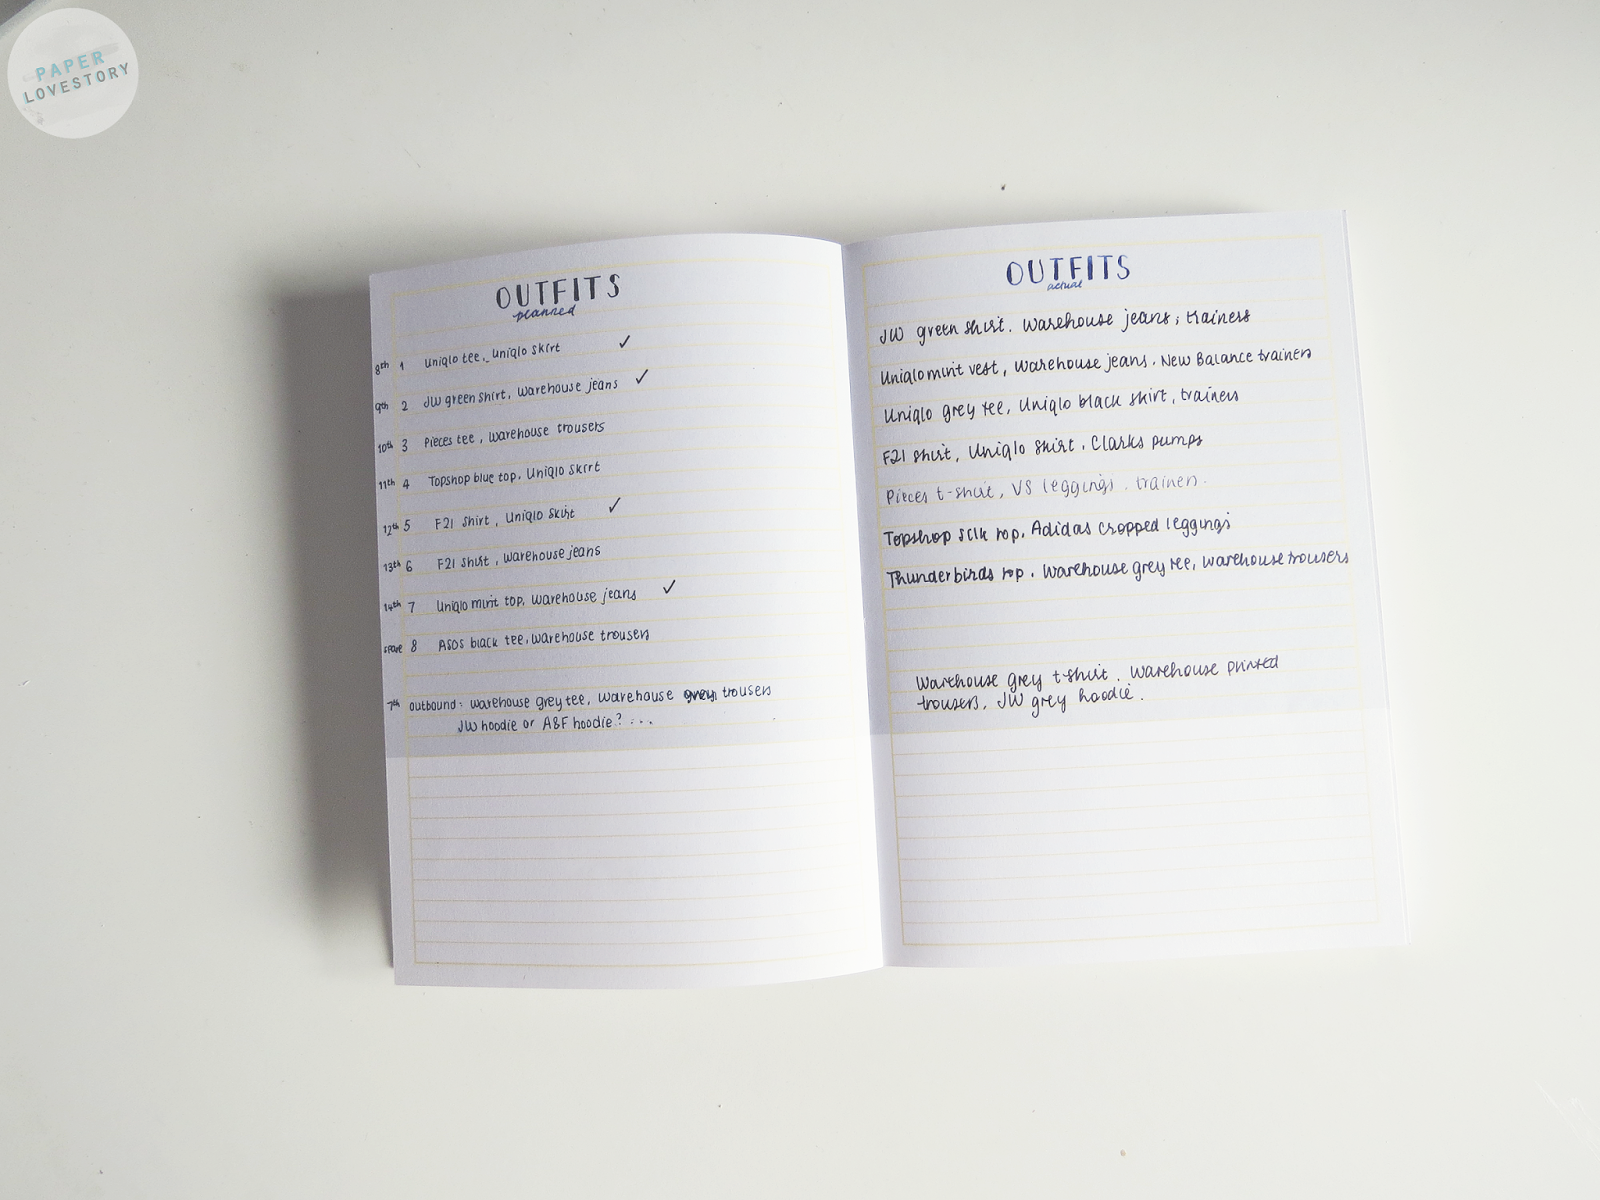 PAPER
LOVESTORY
OUTFITS
planned
8th 1 Uniqlo tee, Uniqlo skirt ✓
9th 2 JW green shirt, Warehouse jeans ✓
10th 3 Pieces tee, Warehouse trousers
11th 4 Topshop blue top, Uniqlo skirt
12th 5 F21 shirt, Uniqlo skirt ✓
13th 6 F21 shirt, Warehouse jeans
14th 7 Uniqlo mint top, Warehouse jeans ✓
spare 8 ASOS black tee, Warehouse trousers
7th outbound: Warehouse grey tee, Warehouse grey trousers
JW hoodie or A&F hoodie? ...
OUTFITS
actual
JW green shirt, Warehouse jeans, trainers
Uniqlo mint vest, Warehouse jeans, New Balance trainers
Uniqlo grey tee, Uniqlo black skirt, trainers
F21 shirt, Uniqlo skirt, Clarks pumps
Pieces t-shirt, VS leggings, trainers.
Topshop silk top, Adidas cropped leggings
Thunderbirds top, Warehouse grey tee, Warehouse trousers
Warehouse grey t-shirt, Warehouse printed
trousers, JW grey hoodie.